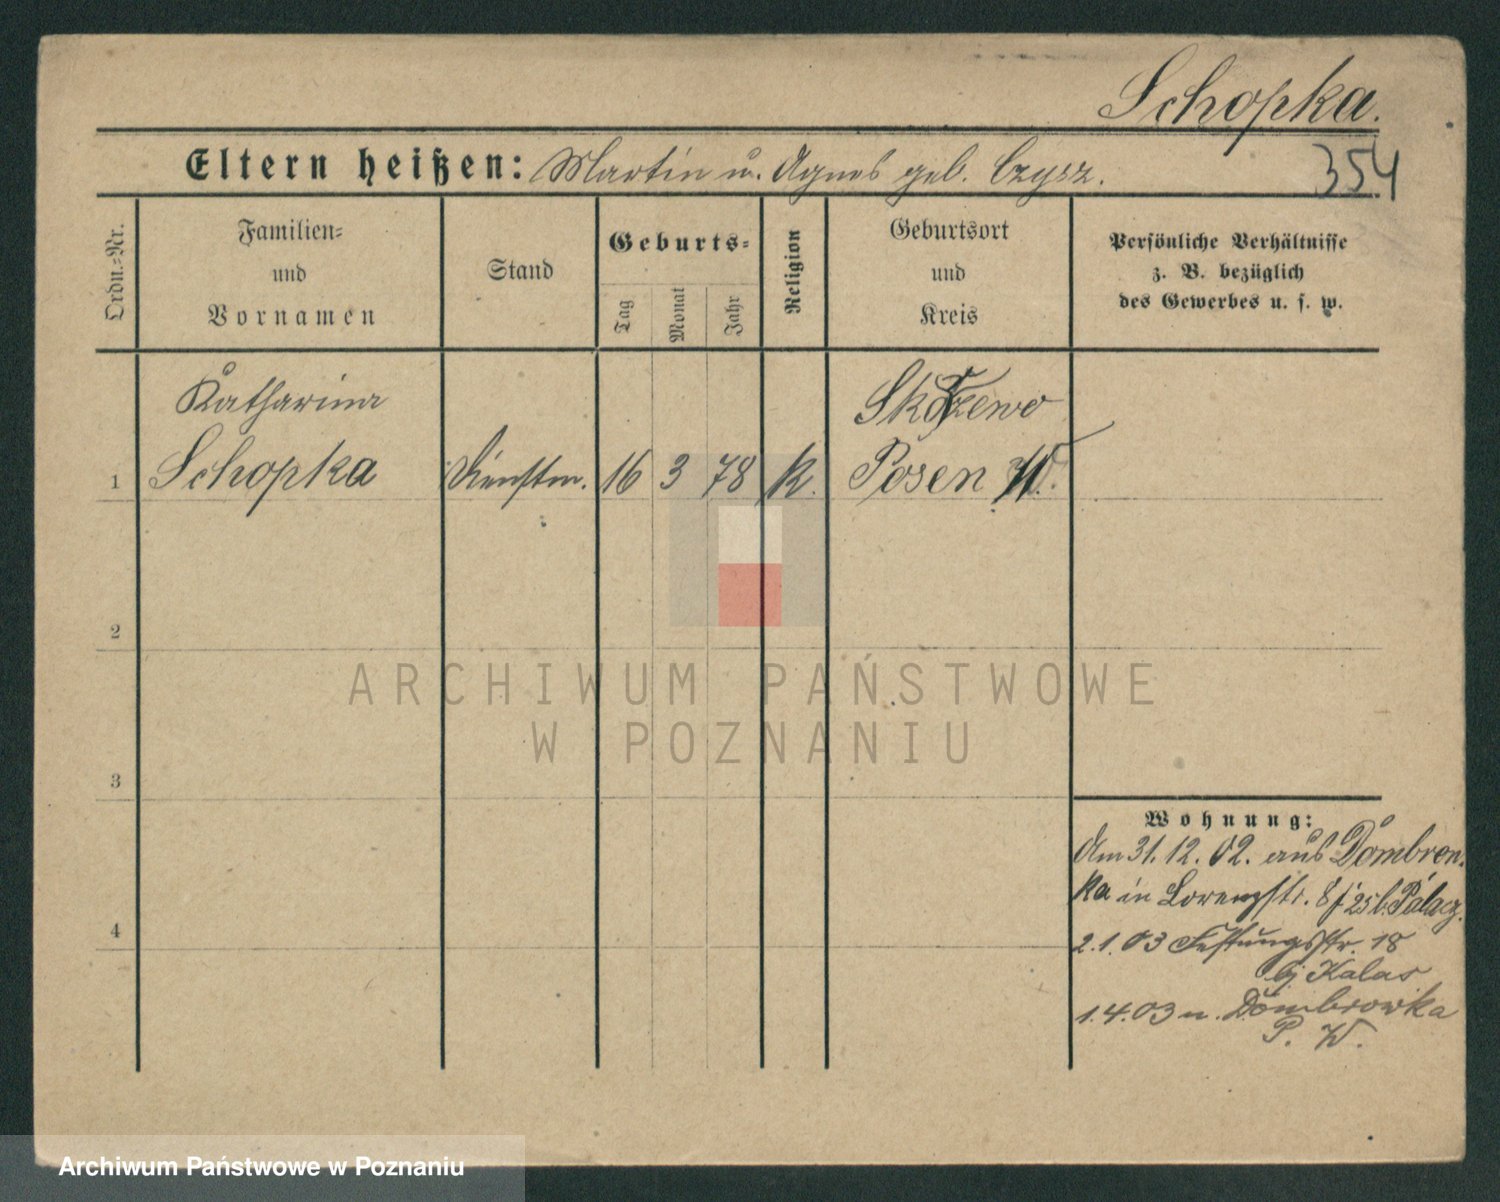 Schopka.
Eltern heißen: Martin u. Agnes geb. Czysz.
354
Ordn.-Nr.
Familien- und Vornamen
Stand
Geburts-
Tag
Monat
Jahr
Religion
Geburtsort und Kreis
Persönliche Verhältnisse
z. B. bezüglich
des Gewerbes u. s. w.
Katharina
Skórzewo
1 Schopka Dienstm. 16 3 78 K. Posen W.
2
3
4
Wohnung:
Am 31.12.02. aus Dombrow-
ka in Lorenzstr. 8 25 b. Palacz.
2.1.03 Festungsstr. 18
bj Kalas
1.4.03 n. Dombrowka
P. W.
ARCHIWUM PAŃSTWOWE
W POZNANIU
Archiwum Państwowe w Poznaniu